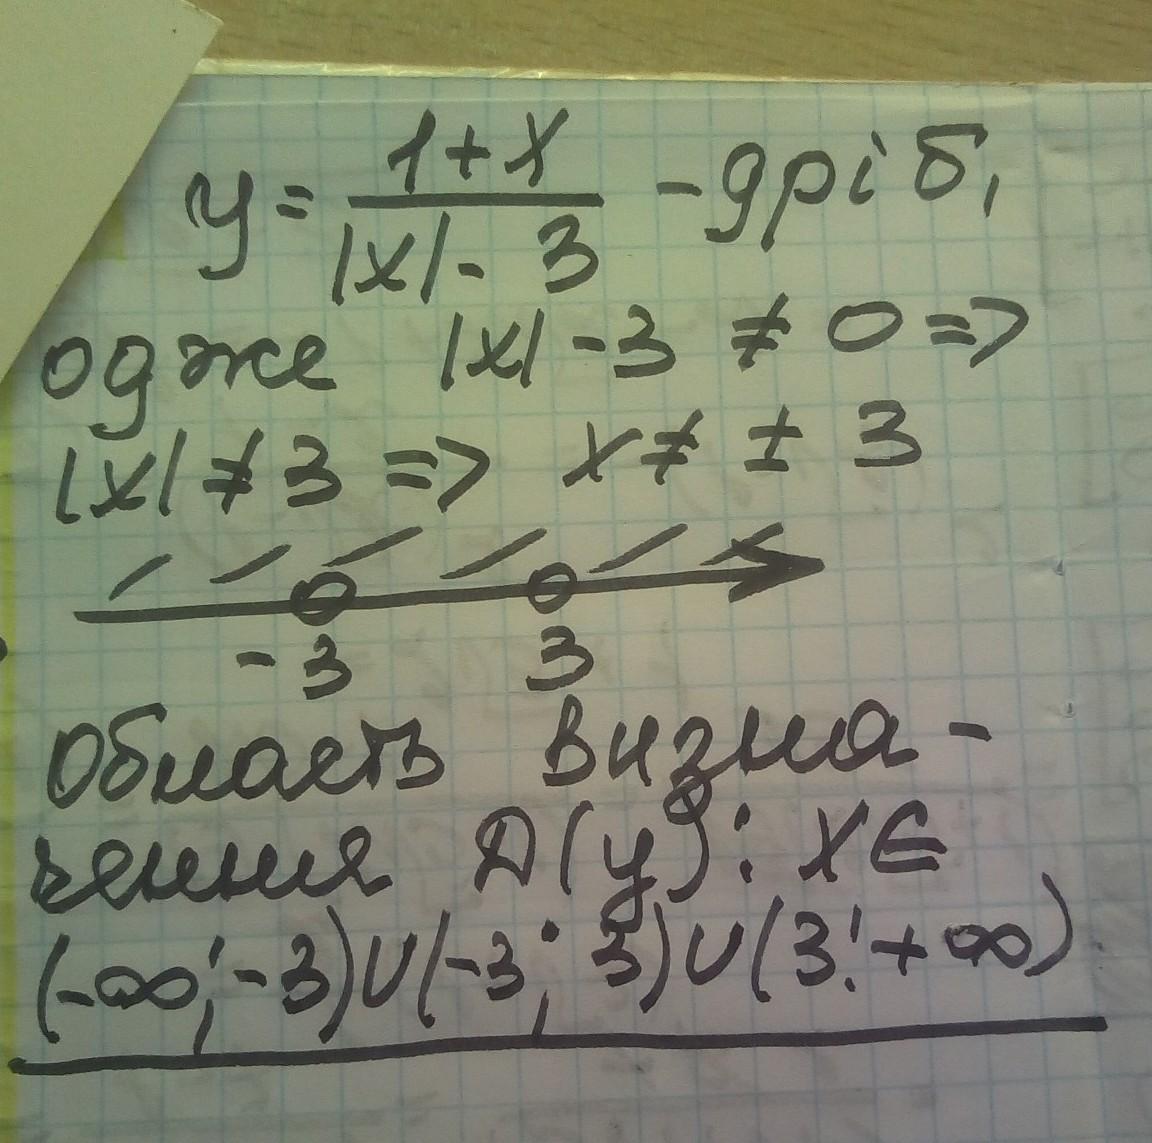 y = (1+x)/(|x| - 3) - дріб,
одже |x| - 3 ≠ 0 =>
|x| ≠ 3 => x ≠ ± 3
-3 3
Область визна-
чення D(y): x ∈
(-∞; -3) ∪ (-3; 3) ∪ (3; +∞)